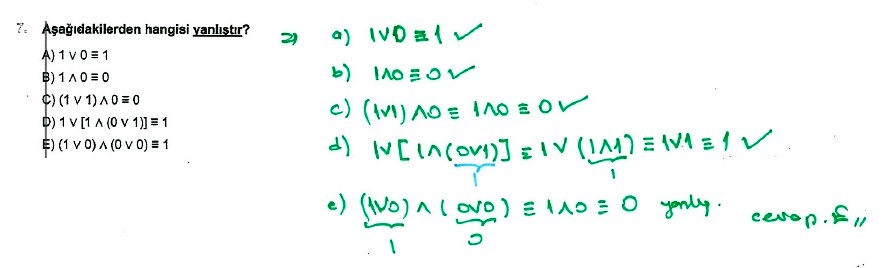 7. Aşağıdakilerden hangisi yanlıştır?
A) 1 ∨ 0 ≡ 1
B) 1 ∧ 0 ≡ 0
C) (1 ∨ 1) ∧ 0 ≡ 0
D) 1 ∨ [1 ∧ (0 ∨ 1)] ≡ 1
E) (1 ∨ 0) ∧ (0 ∨ 0) ≡ 1
a) 1∨0 ≡ 1 ✓
b) 1∧0 ≡ 0 ✓
c) (1∨1) ∧ 0 ≡ 1∧0 ≡ 0 ✓
d) 1∨[1∧(0∨1)] ≡ 1∨(1∧1) ≡ 1∨1 ≡ 1 ✓
1 1
e) (1∨0) ∧ (0∨0) ≡ 1∧0 ≡ 0 yanlış. cevap. E //
1 0